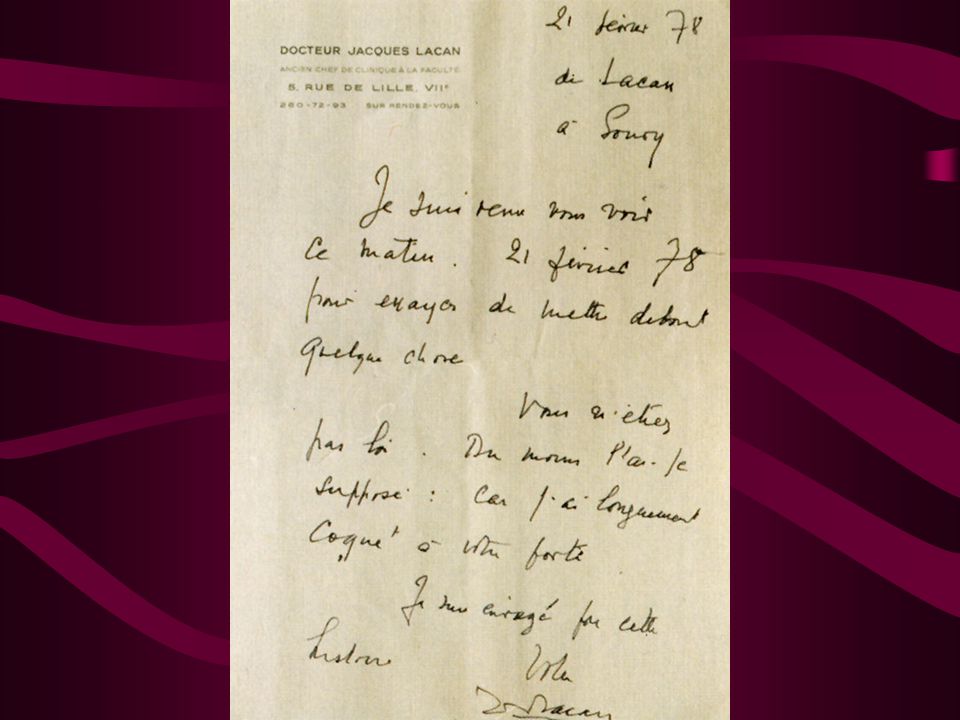 DOCTEUR JACQUES LACAN
ANCIEN CHEF DE CLINIQUE À LA FACULTÉ
5, RUE DE LILLE, VIIe
260-72-93 SUR RENDEZ-VOUS
21 février 78
de Lacan
à Soury
Je suis venu vous voir
ce matin. 21 février 78
pour essayer de mettre debout
quelque chose
Vous n'étiez
pas là. Du moins l'ai-je
supposé : car j'ai longuement
coqué à votre porte
Je suis enragé par cette
histoire
Votre
J. Lacan